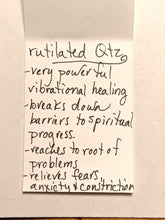 rutilated Qtz
-very powerful
vibrational healing
-breaks down
barriers to spiritual
progress.
-reaches to root of
problems
-relieves fears,
anxiety & constriction